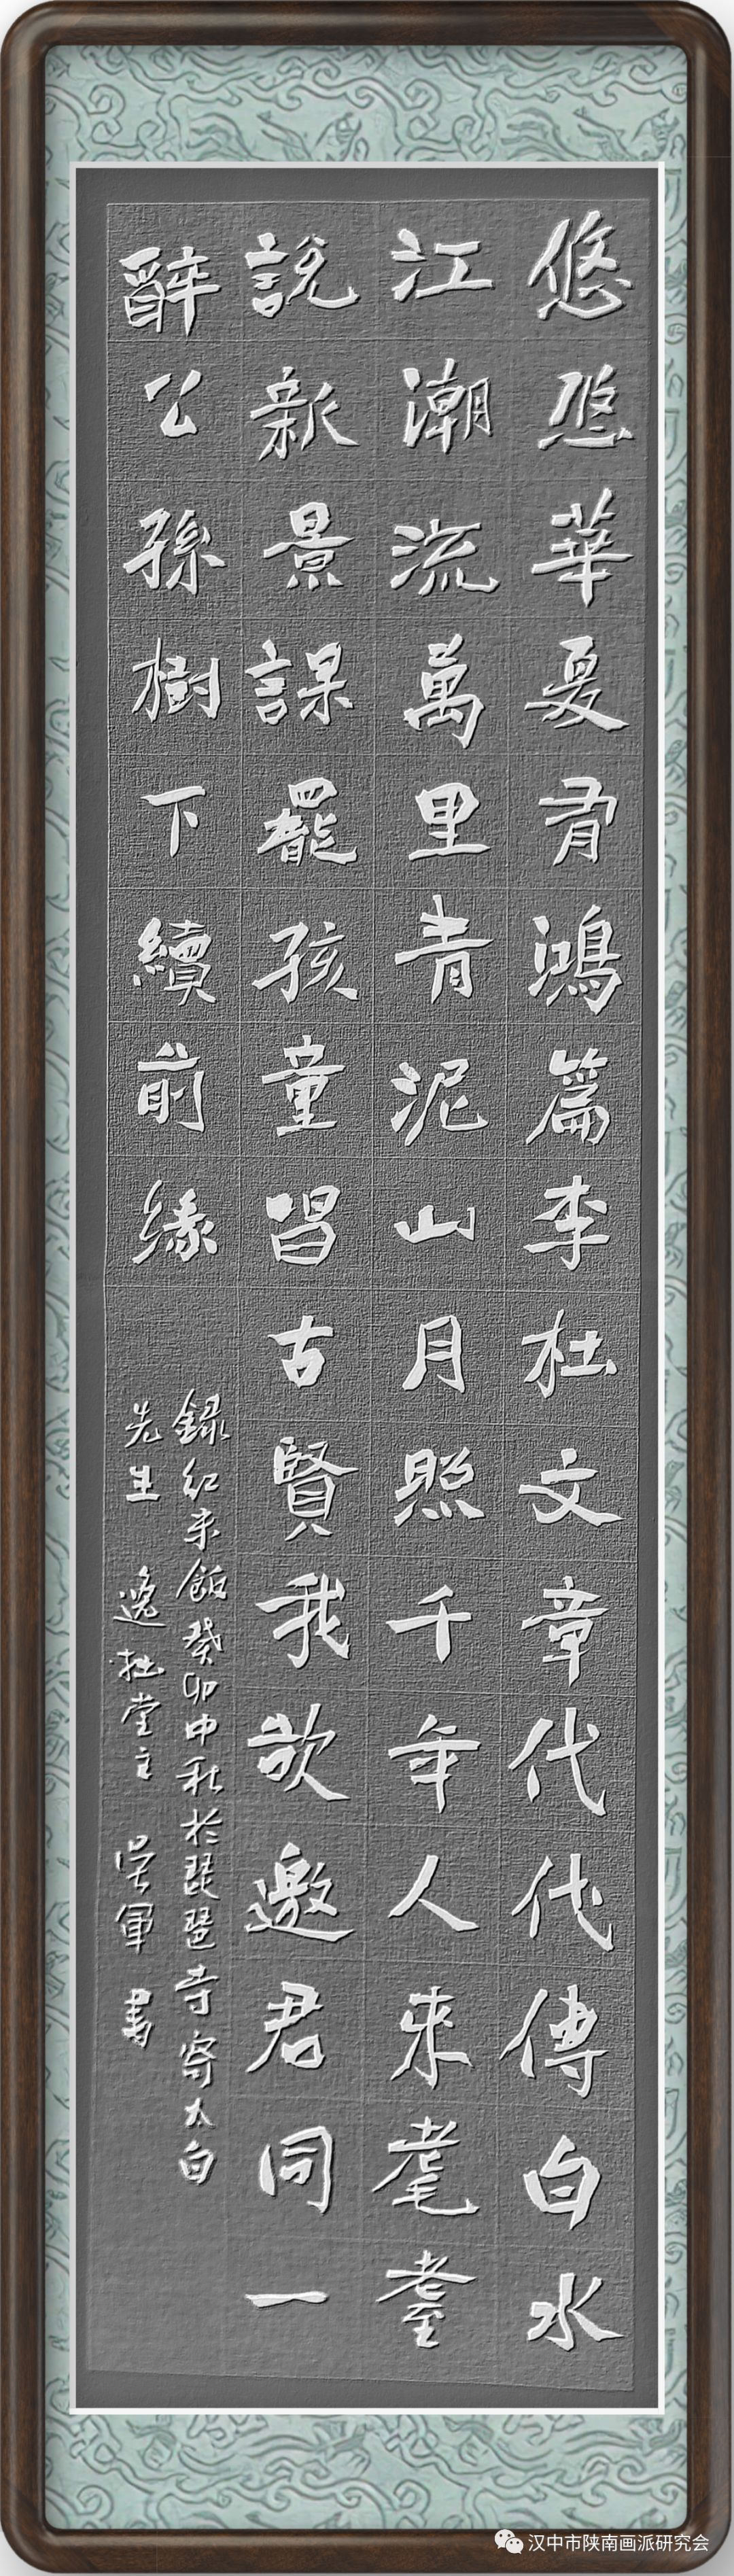 悠悠華夏有鴻篇李杜文章代代傳白水
江潮流萬里青泥山月照千年人來耄耋
說新景課罷孩童唱古賢我欲邀君同一
醉公孫樹下續前緣
錄紅癸卯中秋於琵琶寺寄太白
先生 逸拙堂主 吳軍 書
汉中市陕南画派研究会